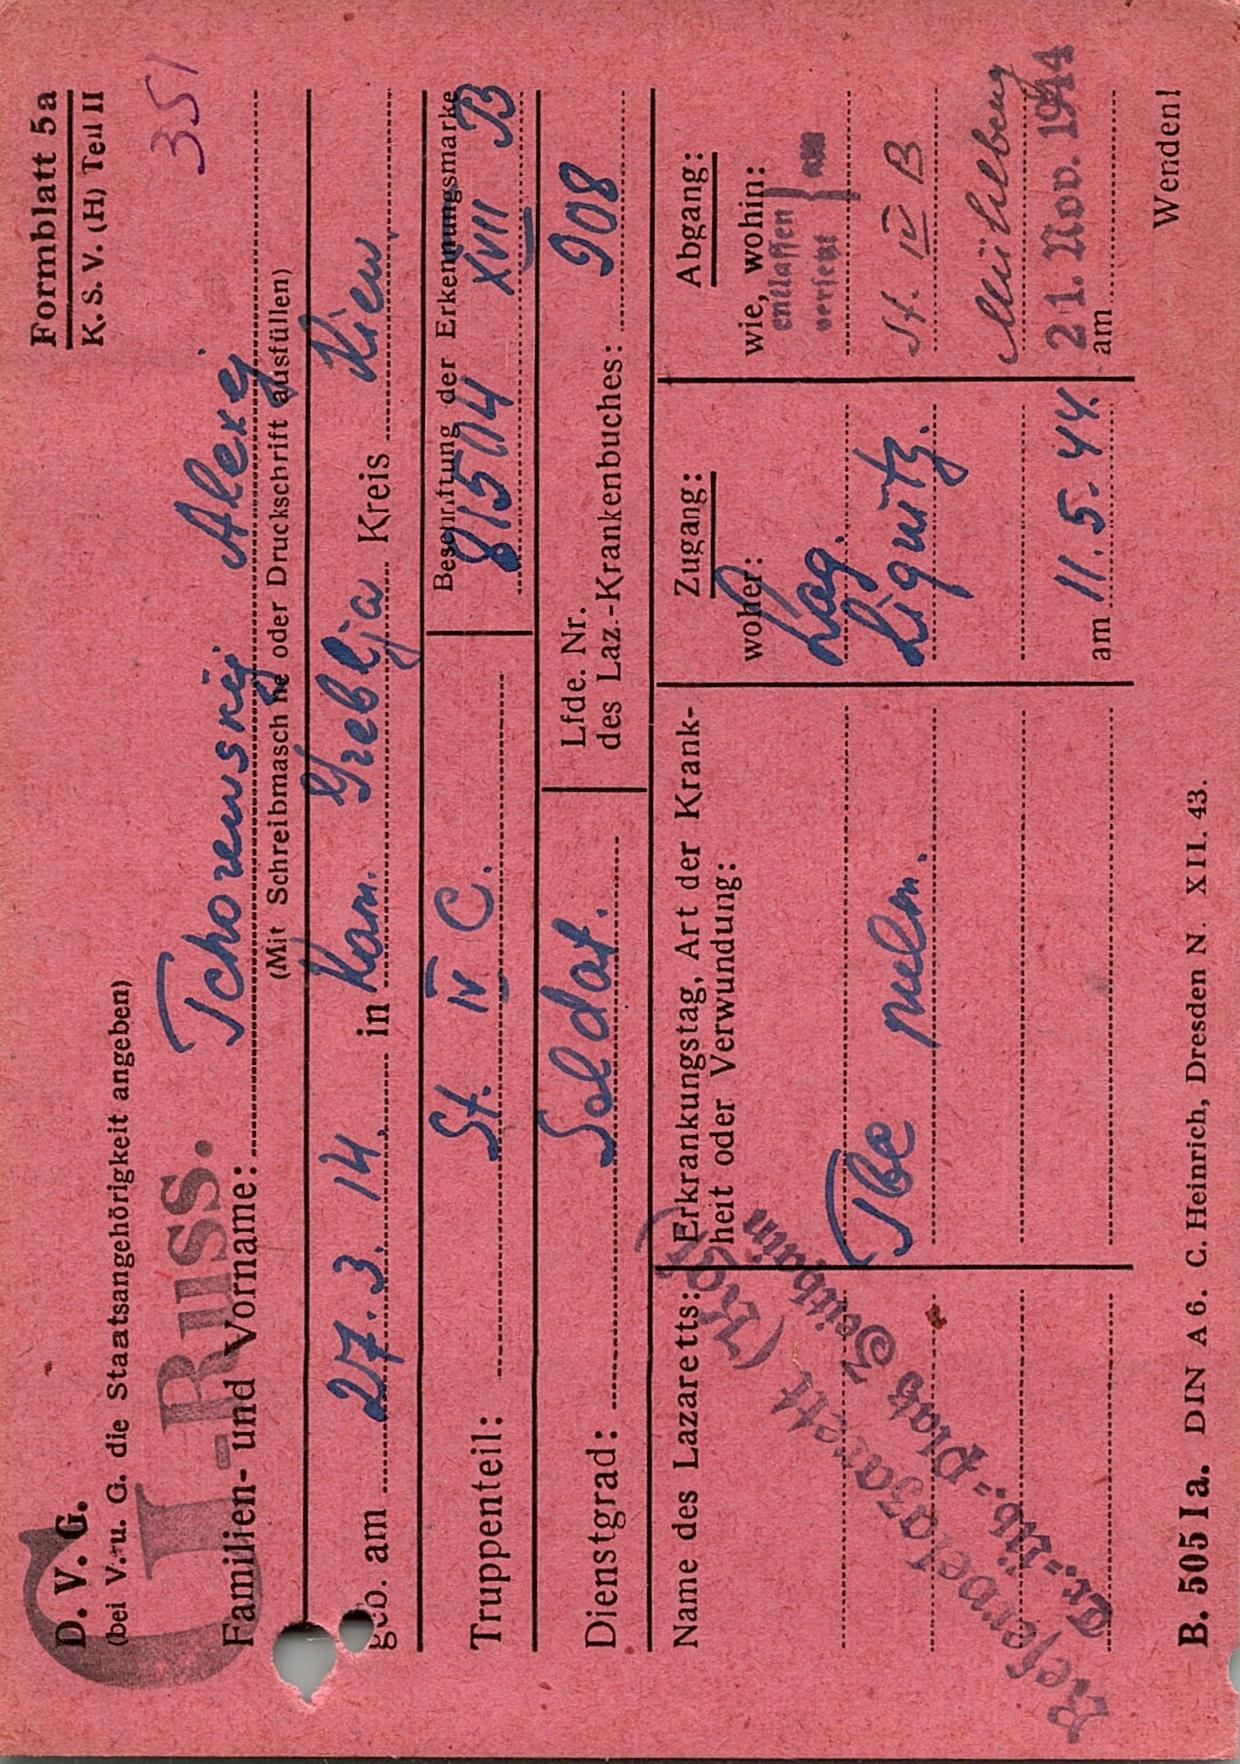 Formblatt 5a
K. S. V. (H) Teil II
D. V. G.
(bei V. u. G. die Staatsangehörigkeit angeben)
351
G
I-Russ.
Familien- und Vorname: Tchorewskij Alexej
(Mit Schreibmaschine oder Druckschrift ausfüllen)
geb. am 27. 3. 14. in Kam. Greblja Kreis Kiew
Truppenteil: St. IV C.
Beschriftung der Erkennungsmarke
81504 XVII B
Dienstgrad: Soldat.
Lfde. Nr.
des Laz.-Krankenbuches: 908
Name des Lazaretts:
Reservelazarett (Kgf)
Tr.-Üb.-Platz Zeithain
Erkrankungstag, Art der Krank-
heit oder Verwundung:
Tbc pulm.
Zugang:
woher:
Lag.
Lignitz.
am 11. 5. 44.
Abgang:
wie, wohin:
entlassen
versetzt } am
St. IV B
Mühlberg
am 21. Nov. 1944
Wenden!
B. 505 Ia. DIN A 6. C. Heinrich, Dresden N XII. 43.